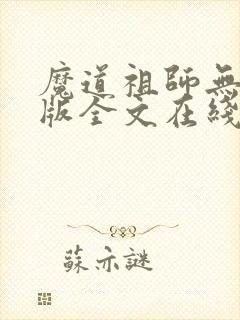 魔道祖師無
版全文在綫
蘇亦謎